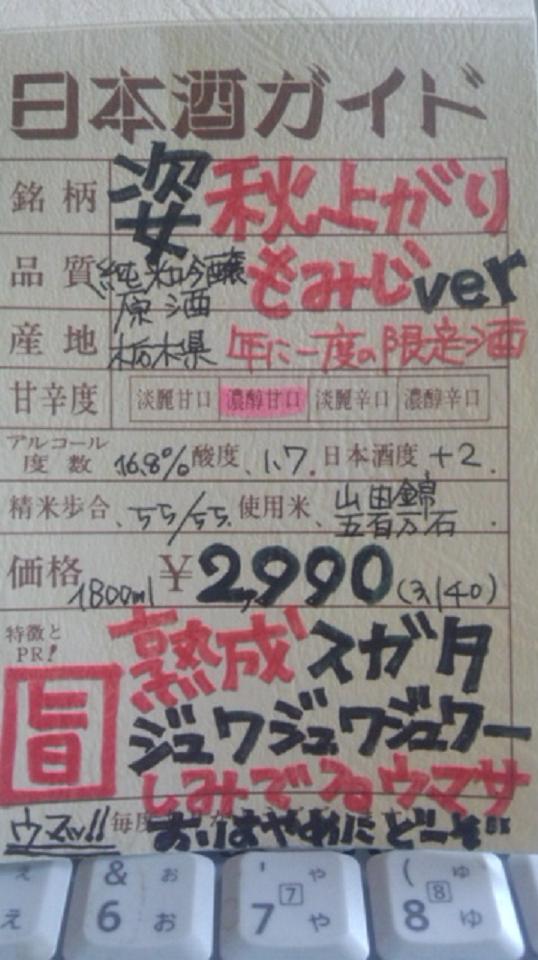 日本酒ガイド
銘柄 姿 秋上がり
品質 純米吟醸 もみじver
原酒
産地 栃木県 年に一度の限定酒
甘辛度 淡麗甘口 濃醇甘口 淡麗辛口 濃醇辛口
アルコール度数 16.8% 酸度、1.7. 日本酒度 +2.
精米歩合、55/55. 使用米、山田錦 五百万石.
価格 1800ml ¥2,990 (3,140)
特徴とPR! 熟成スガタ
旨 ジュワジュワジュワー
しみでるウマサ
ウマッ!! 毎度 おはやめにどーぞ
え & お ' や ( ゆ
え 6 お 7 7 や 8 8 ゆ